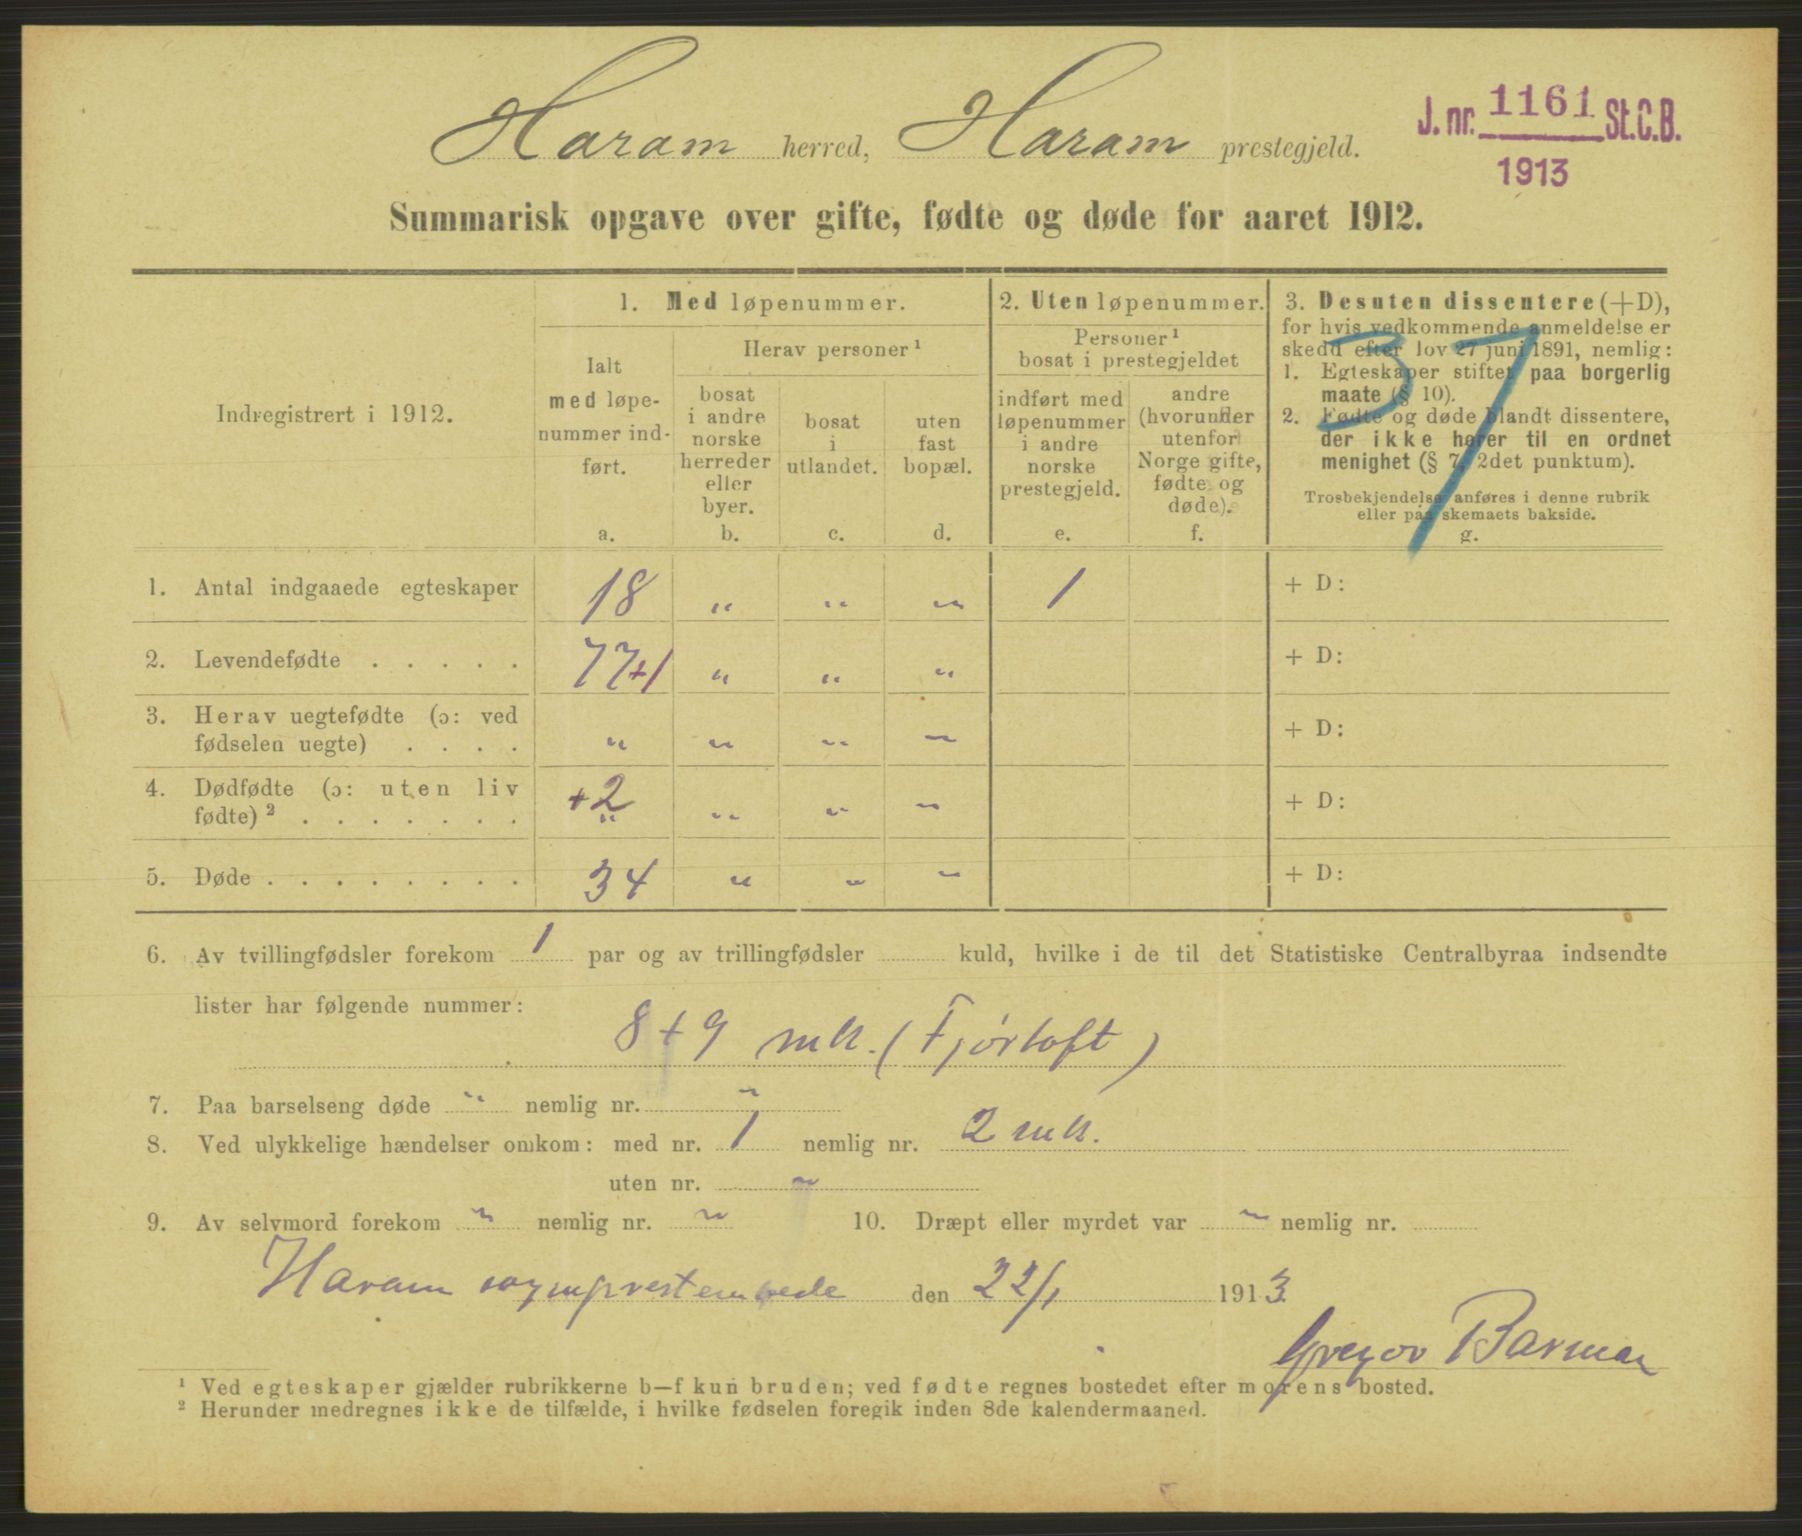 Haram herred, Haram prestegjeld.
J. nr. 1161 St.C.B.
1913
Summarisk opgave over gifte, fødte og døde for aaret 1912.
Indregistrert i 1912.
1. Med løpenummer.
Ialt
med løpe-
nummer ind-
ført.
a.
Herav personer¹
bosat
i andre
norske
herreder
eller
byer.
b.
bosat
i
utlandet.
c.
uten
fast
bopæl.
d.
2. Uten løpenummer.
Personer¹
bosat i prestegjeldet
indført med
løpenummer
i andre
norske
prestegjeld.
e.
andre
(hvorunder
utenfor
Norge gifte,
fødte og
døde).
f.
3. Desuten dissentere (+D),
for hvis vedkommende anmeldelse er
skedd efter lov 27 juni 1891, nemlig:
1. Egteskaper stiftet paa borgerlig
maate (§ 10).
2. Fødte og døde blandt dissentere,
der ikke hører til en ordnet
menighet (§ 7, 2det punktum).
Trosbekjendelse anføres i denne rubrik
eller paa skemaets bakside.
g.
37
1. Antal indgaaede egteskaper 18 " " " 1 + D:
2. Levendefødte . . . . . 77+1 " " " + D:
3. Herav uegtefødte (ɔ: ved
fødselen uegte) . . . . " " " " + D:
4. Dødfødte (ɔ: uten liv
fødte)² . . . . . . . +2 " " " " + D:
5. Døde . . . . . . . . 34 " " " + D:
6. Av tvillingfødsler forekom 1 par og av trillingfødsler kuld, hvilke i de til det Statistiske Centralbyraa indsendte
lister har følgende nummer:
8+9 mk. (Fjørtoft)
7. Paa barselseng døde " nemlig nr. "
8. Ved ulykkelige hændelser omkom: med nr. 1 nemlig nr. 2 mk.
uten nr. "
9. Av selvmord forekom " nemlig nr. " 10. Dræpt eller myrdet var " nemlig nr.
Haram sogneprestembede den 22/1 1913.
Gregor Barman
¹ Ved egteskaper gjælder rubrikkerne b—f kun bruden; ved fødte regnes bostedet efter morens bosted.
² Herunder medregnes ikke de tilfælde, i hvilke fødselen foregik inden 8de kalendermaaned.